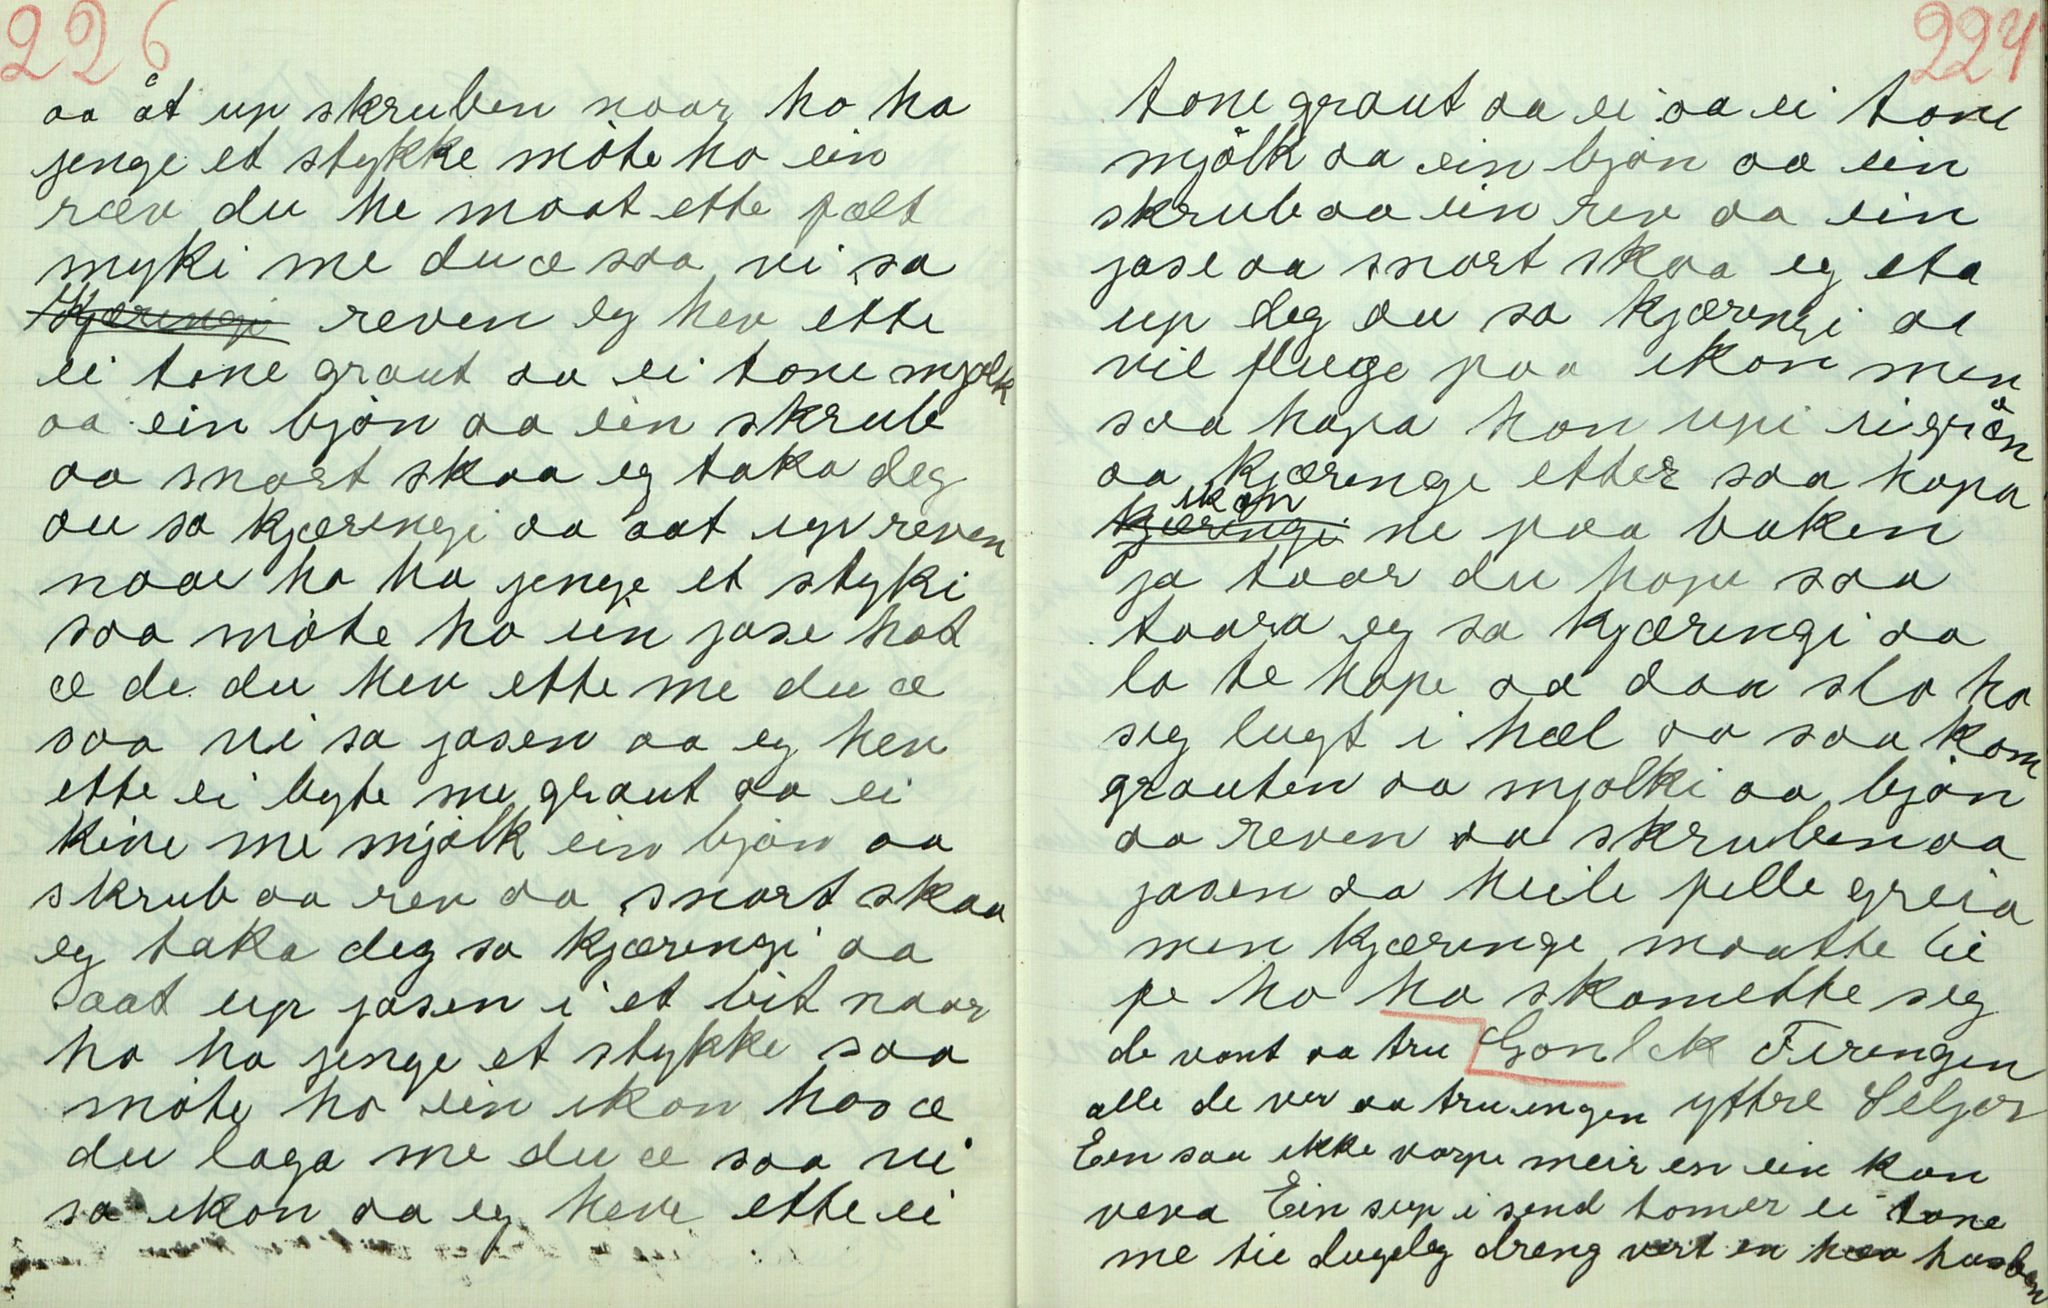 226
aa åt up skruben naar ho ha
jenge et stykke möte ho ein
ræv du he maat ette pælt
myki me du æ saa vi sa
Kjæringi reven eg hev ette
ei tone graut aa ei tone mjølk
aa ein bjön aa ein skrub
aa snart skaa eg taka deg
au sa kjæringi aa aat up reven
naar ho ha jenge et styki
saa möte ho ein jase hat
æ de du hev ette me du æ
saa vi sa jasen aa eg hev
ette ei byte me graut aa ei
kine me mjölk ein bjön aa
skrub aa rev aa snart skaa
eg taka deg sa kjæringi aa
aat up jasen i et bit naar
ho ha jenge et stykke saa
möte ho ein ikon hos æ
du laga me du æ saa vi
sa ikon aa eg heve ette ei
227
tone graut aa ei aa ei tone
mjölk aa ein bjön aa ein
skrub aa ein rev aa ein
jase aa snart skaa eg eta
up deg au sa kjæringi aa
vil fluge paa ikon men
saa hopa kon upi ei grön
aa kjæringe etter saa hopa
kjæringi ikon ne paa baken
ja taar du hope saa
taara eg sa kjæringi aa
la te hope aa daa slo ho
seg lugt i hæl aa saa kom
grauten aa mjolki aa bjön
aa reven aa skruben aa
jasen aa heile pelle greia
men kjæringe maatte lie
pe ho ha skamette seg
de vont aa tru Gonlek Firingen
alle de ver aa tru engen yttre Seljor
Een saa ikke varpe meir en ein kan
vera Ein sup i send tomer ei tone
me tie dugeleg dreng vert en haa husben